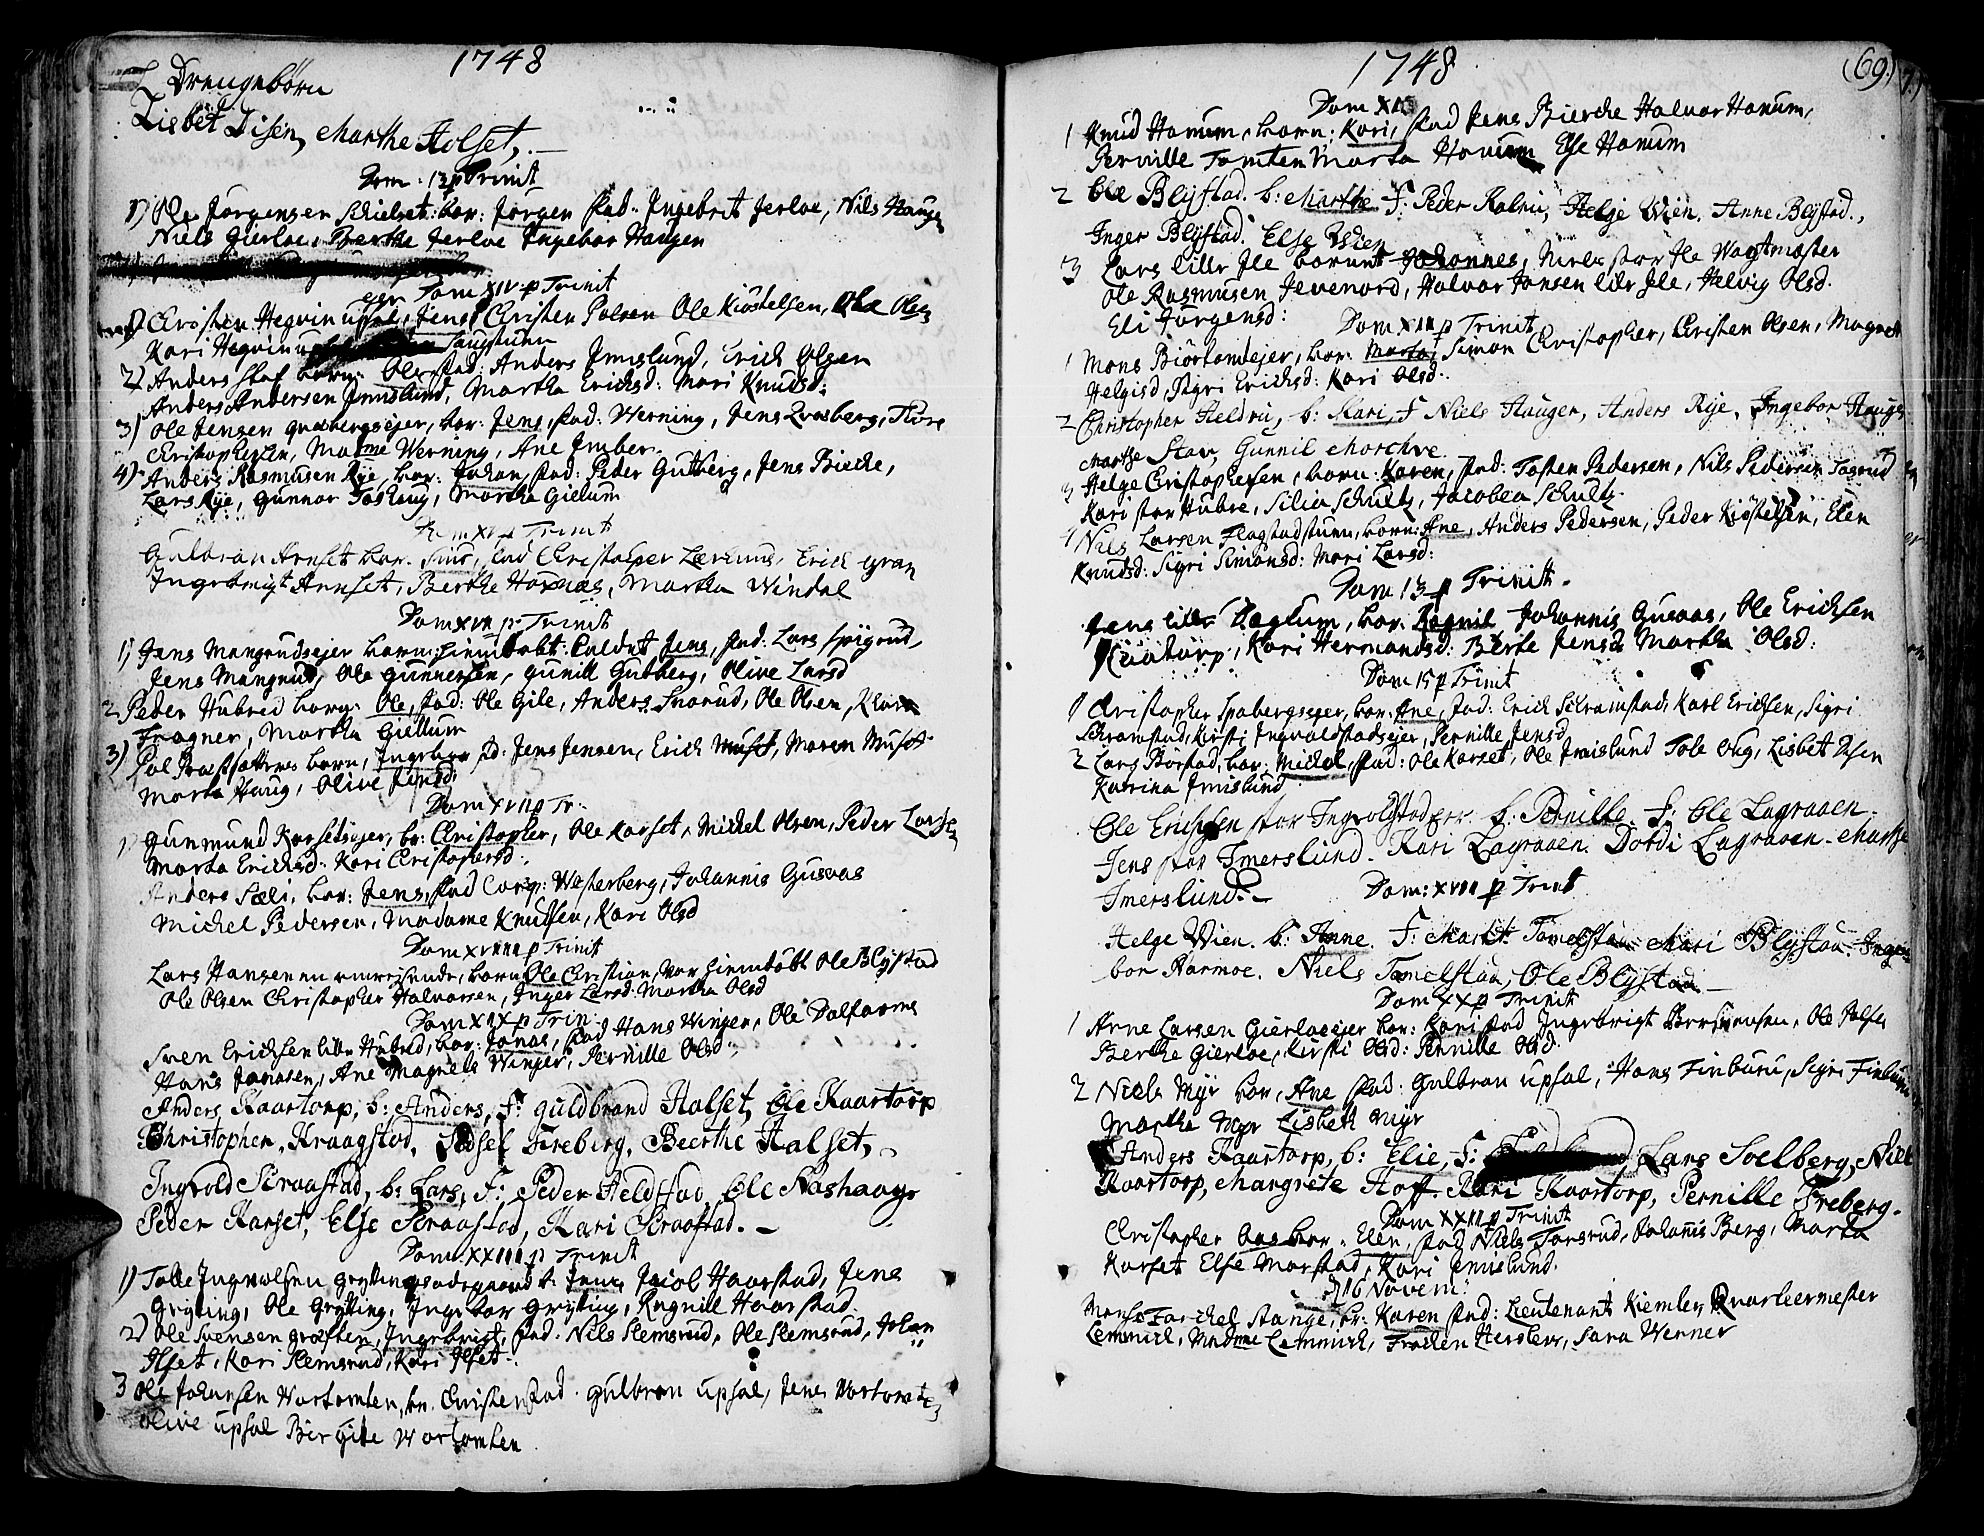 1748
Drengebørn
Lisbet Disen, Marthe Holset,
Dom: 13 p Trinit
1) Ole Jørgensen Skielset: bar: Jørgen fad. Ingebrit Jerloe, Nils Haugen
Niels Gierloe, Berthe Jerloe Ingebor Haugen
Dom XIV p Trinit
Christen Hegvin upsal, Jens, Christen Polsen Ole Kiøstelsen, Ole Olsen
Kari Hegvin
2) Anders Staf barn: Ole fad: Anders Imislund, Erich Olsen
Anders Andersen Imislund, Martha Erichsd: Mari Knudsd:
3) Ole Jensen Grøbergsejer, bar: Jens, fad: Werning, Jens Qvasberg, Tore
Christophersen, Madme Werning, Ane Imber.
4) Anders Rasmusen Rye, bar: Johan, fad: Peder Gutberg, Jens Biecke,
Lars Rye, Gunnor Toshaug, Martha Gielum
Dom XVI p Trinit
Gulbran Arnset bar. Siur, fad Christopher Lærlund, Erich Gran
Ingebrigt Arnset, Berthe Hornæs, Martha Windal
Dom XVII p Trinit
1) Jens Mangrudsejer barn: hiemdøbt: kaldet Jens, fad: Lars Spigrud,
Jens Mangrud, Ole Gunnersen, Gunill Gutberg, Olive Larsd
2 Peder Hubred barn: Ole, fad: Ole Gile, Anders Snorud, Ole Olsen,
Fragner, Martha Giellum
3) Pol Præstsætteren barn, Ingebor fd: Jens Jensen, Erich Muset, Maren Muset
Marta Haug, Olive Jensd:
Dom XVIII p Tr:
1) Gunmund Korsetsejer, br: Christopher, Ole Korset, Michel Olsen, Peder Larsen
Marta Erichsd: Kari Christophersd:
Anders Sæli, bar: Jens, fad Corp: Westerberg, Johannis Gusaas
Michel Pedersen, Madame Knudsen, Kari Olsd
Dom XVIIII p Trinit
Lars Hansen en omreisende, barn Ole Christian, var hiemdøbt Ole Blystad
Ole Olsen Christopher Halvorsen, Inger Larsd Martha Olsd
Dom XIX p Trin:
Sven Erichsen lille Hubred, bar: Jonas, fad Hans Winger, Ole Dalfarme
Hans Jonasen, Ane Magnels Winger, Pernille Olsd:
Anders Kaartorp, b: Anders, F: Guldbrand Halset, Ole Kaartorp
Christopher Kraagstad, Sidsel Freberg, Beerthe Halset,
Ingvold Skraastad, b: Lars, F: Peder Heldstad, Ole Nashaug
Peder Karset, Else Skraastad, Kari Skraastad. –
Dom XXIII p Trinit
1) Tolle Ingvolsen Gryting ødegaard b: Jens, Jacob Haarstad, Jens
Gryting, Ole Gryting, Ingebor Gryting, Ragnill Haarstad
2) Ole Svensen Græsten, Ingebrigt, fad. Nils Slemsrud, Ole Slemsrud, Johan
Ilset, Kari Slemsrud, Kari Ilset.
3 Ole Johansen Wortomten, br. Christen fad. Gulbran Upsal, Jens Wortomten
Olive Upsal Birgite Wortomten
1748
(69.)
Dom XII
1 Knud Honum, barn: Kari, fad Jens Biecke Halvor Honum,
Pernille Tomten Marta Honum Else Honum
2 Ole Blystad. b: Marthe F: Peder Kalrü, Helge Wien, Anne Blystad,
Inger Blystad. Else Wien
3 Lars lille Ile barnet Johannes, Niels stor Ile Wagtmæster
Ole Rasmusen Jevenord, Halvor Jonsen lille Ile, Helvig Olsd.
Eli Jørgensd:
Dom XIII p Trinit
1 Mons Biørtomtejer, bar. Marta, Simon Christopher, Christen Olsen, Magnell
Helgisd, Sigri Erichsd: Kari Olsd.
2 Christopher Heldru, b: Kari, F Niels Hauger, Anders Rye, Ingebor Hauger
Marthe Stav, Gunnil Morchve
3 Helge Christophersen, barn: Karen, fad: Tosten Pedersen, Nils Pedersen Togrud
Kari stor Hubre, Silia Schultz, Jacobea Schultz.
4 Nils Larsen Flagstadstuen, barn: Ane, Anders Pedersen, Peder Kiøstelsen, Elen
Knudsd: Sigri Simonsd: Mari Larsd:
Dom 13 p Trinit.
Jens lille Dæglum, bar. Rognil Johannis Gusaas, Ole Erichsen
Kaatorp, Kari Hermandsd: Berte Jensd Martha Olsd:
Dom 15 p Trinit
1 Christopher Spabergsejer, bar: Ane, fad: Erich Skramstad, Karl Erichsen, Sigri
Skramstad, Kirsti Ingvoldstadsejer, Pernille Jensd
2 Lars Børstad, bar: Michel, fad: Ole Karset, Ole Imislund Tole Aug, Lisbet Disen
Katrina Imislund
Ole Erichsen stor Ingvolstad b: Pernille. F: Ole Lagraaen
Jens stor Imerslund. Kari Lagraaen. Dordi Lagraaen. Marthe
Imerslund. –
Dom: XVIII p Trinit
Helge Wien. b: Anne. F: Marit Tomelstad Mari Blystad. Inge-
bor Harmoe. Niels Tomelstad, Ole Blystad –
Dom XX p Trinit
1 Arne Larsen Gierloeejer bar: Kari fad Ingebrigt Berthensen, Ole Polsen
Berthe Gierloe, Kirsti Olsd: Pernille Olsd
2 Niels Myr bar, Ane fad: Gulbran Upsal, Hans Finburu, Sigri Finburu
Martha Myr Lisbeth Myr
Anders Kaartorp, b: Elie, F: Lars Soelberg, Niels
Kaartorp, Mangrete Hoff. Kari Kaartorp, Pernille Freberg.
Dom XXII p Trinit
Christopher Aas bar. Elen, fad Niels Torsrud, Johannis Berg, Marta
Korset Else Morstad, Kari Imislund.
d 16 Novem:
Stange, br: Karen fad: Lieutenant Kiemler, Qvarteermester
Lemmich, Madme Lemmich, Frøcken Hersleb, Sara Werner